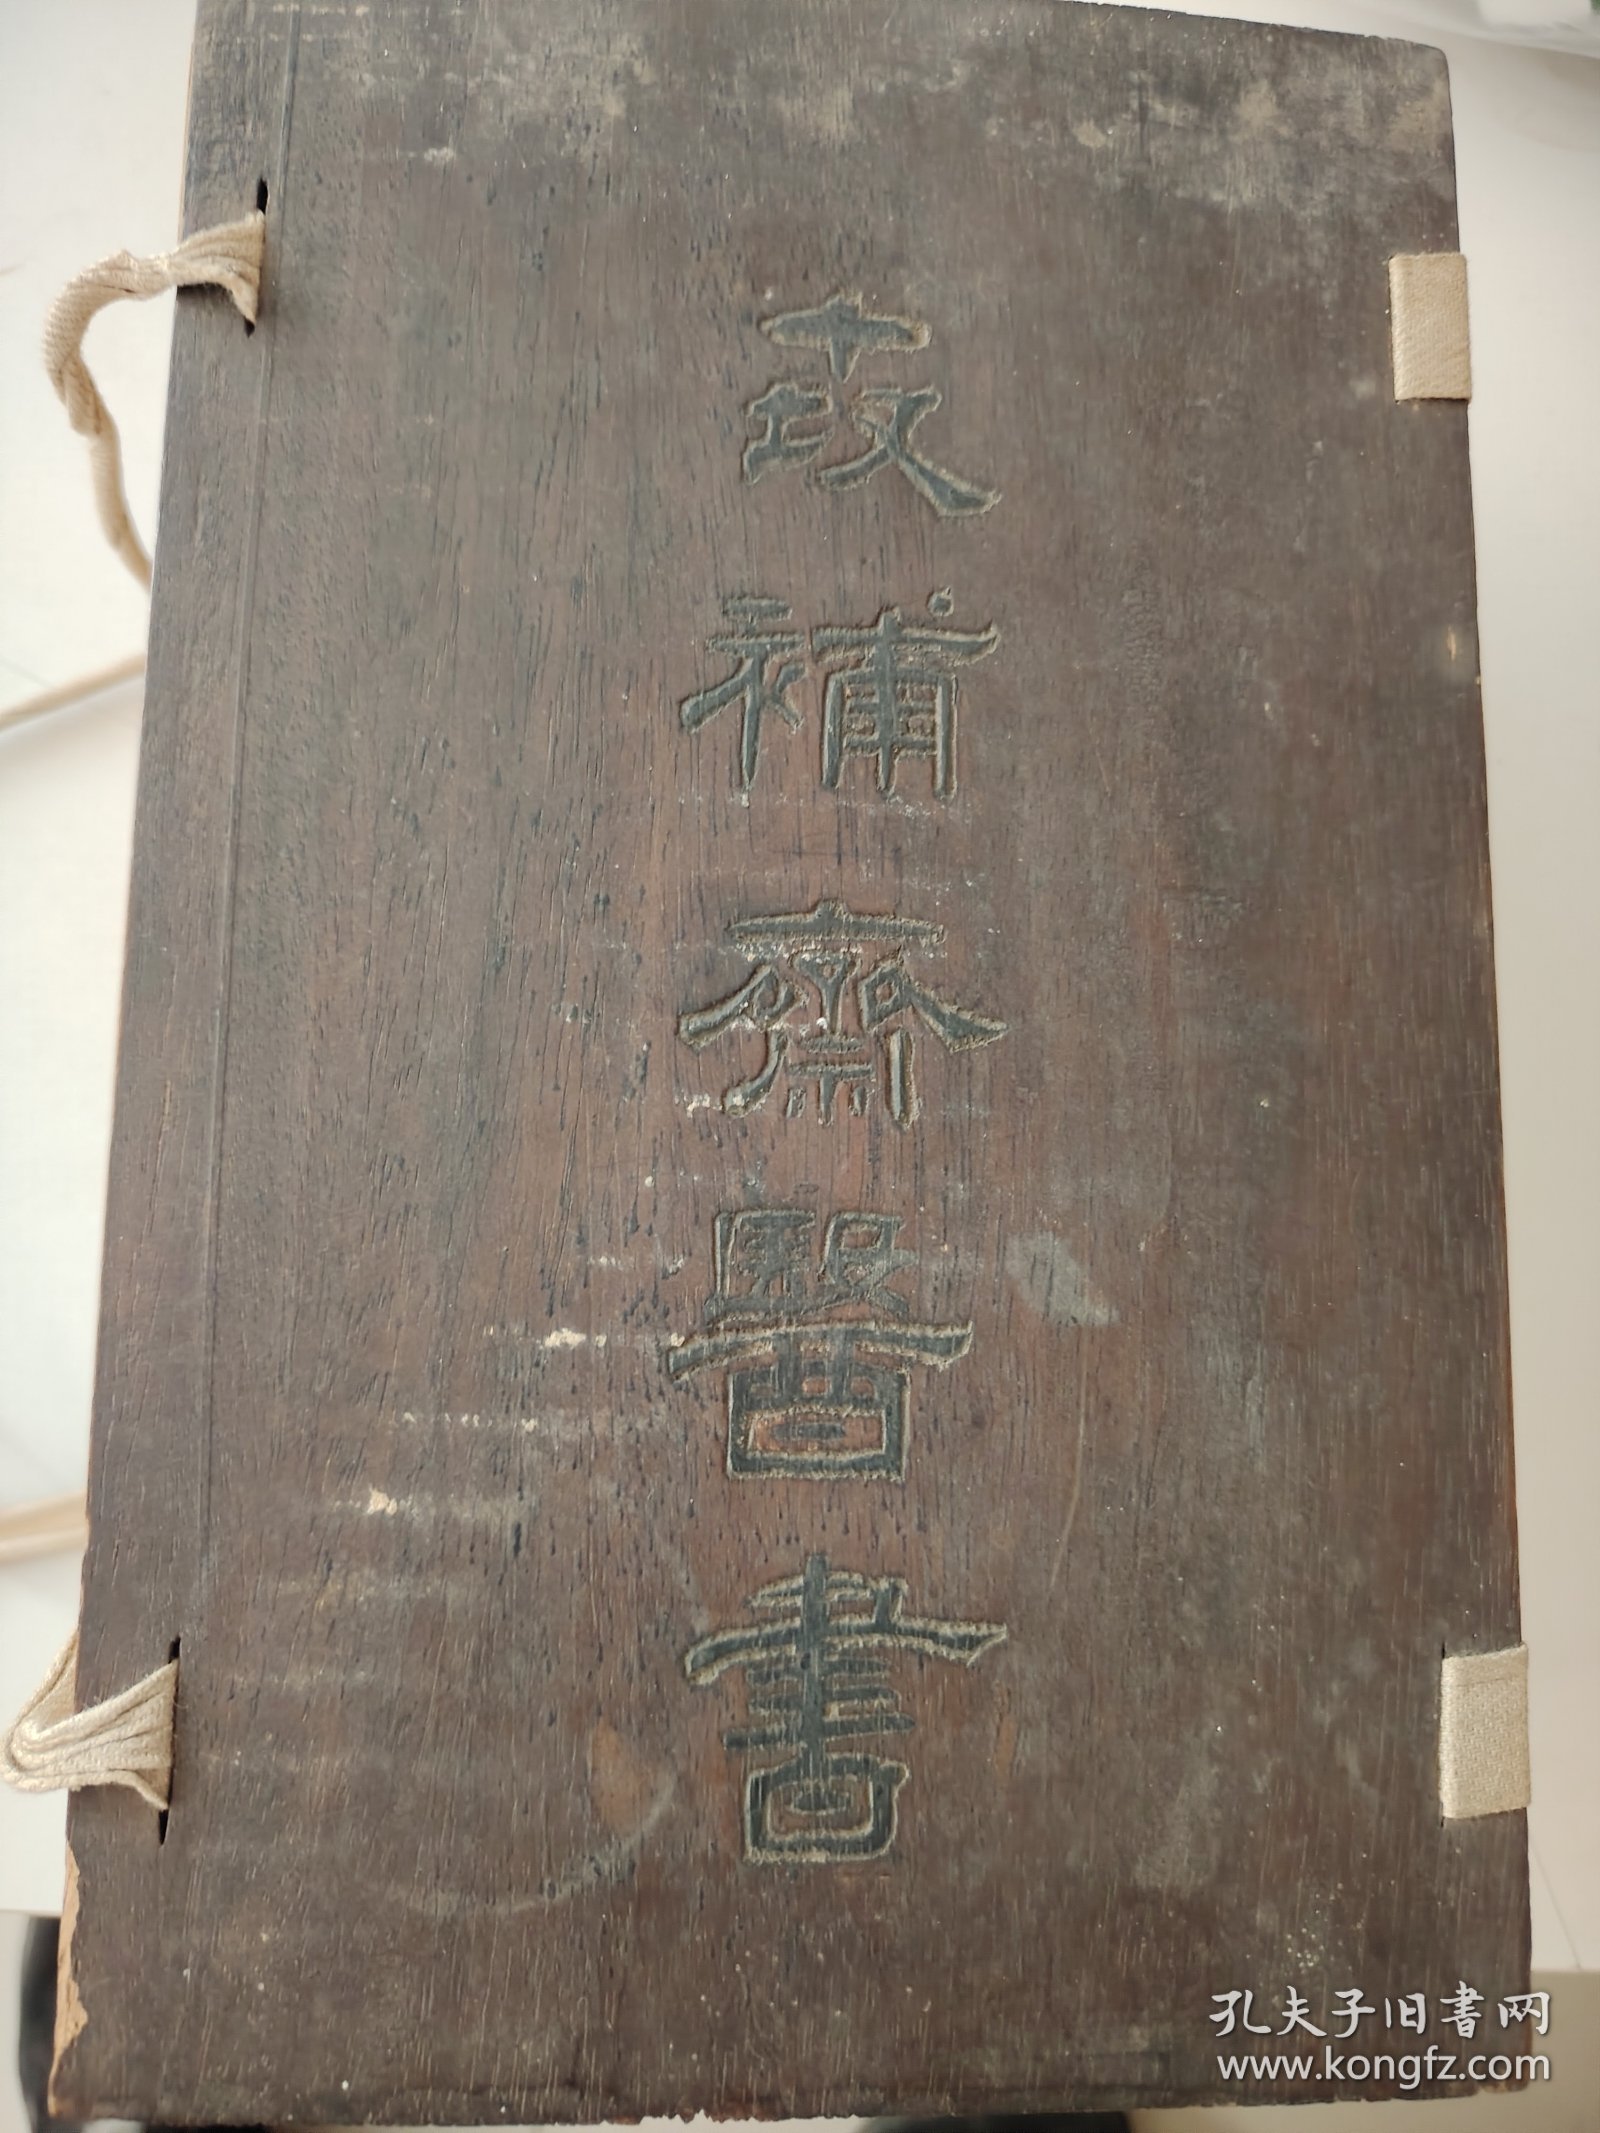 世補齋醫書
孔夫子旧书网
www.kongfz.com